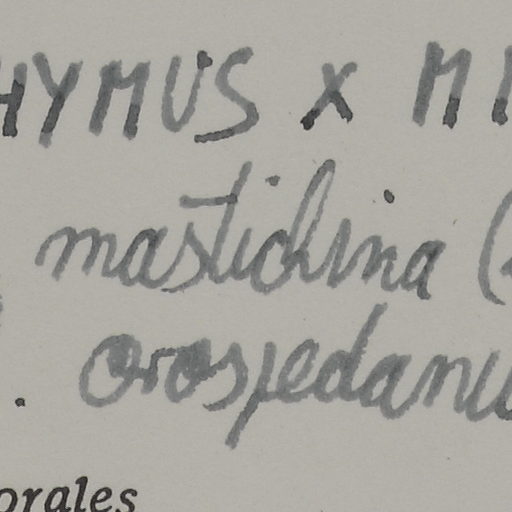 HYMUS x MI
mastichina (
. orospedanu
orales